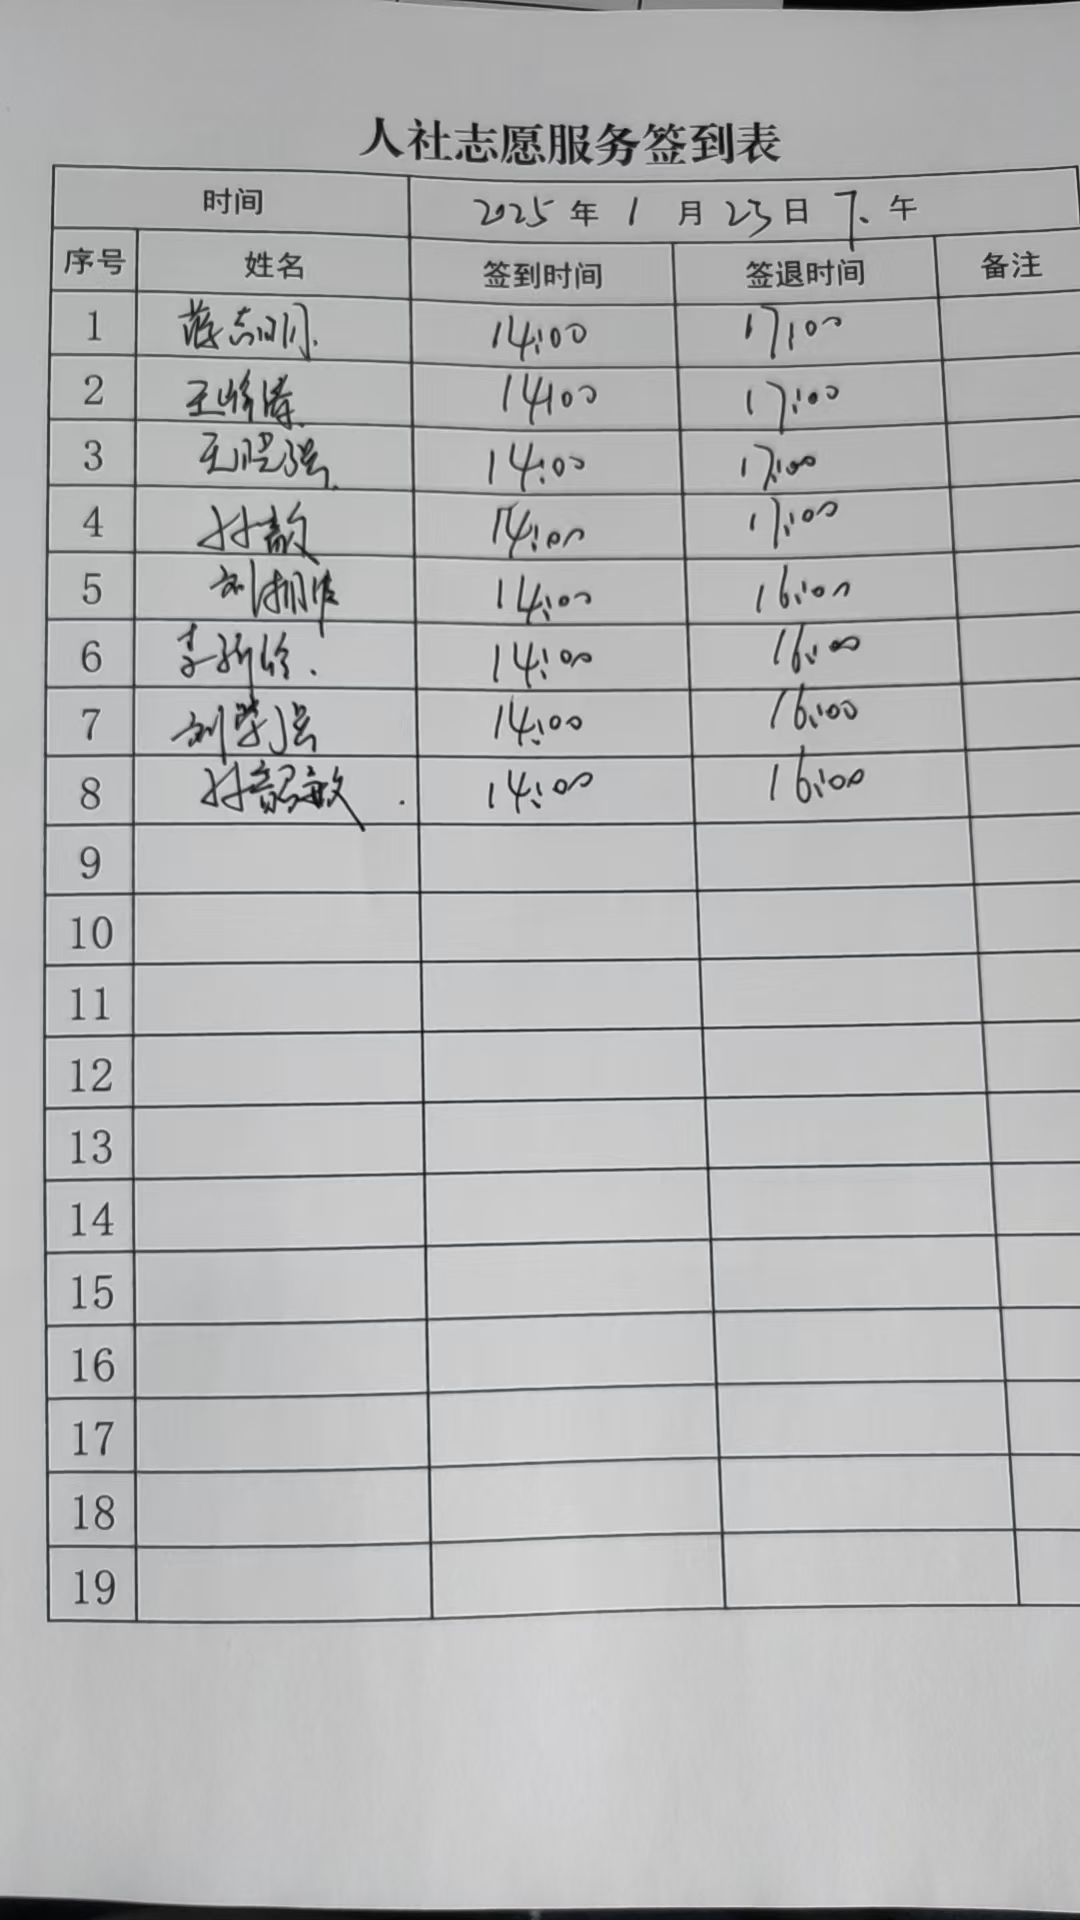 人社志愿服务签到表
时间 2025 年 1 月 23 日 下 午
序号 姓名 签到时间 签退时间 备注
1 蒋志明 14:00 17:00
2 王 14:00 17:00
3 王晓强 14:00 17:00
4 14:00 17:00
5 刘 14:00 16:00
6 李新 14:00 16:00
7 刘学强 14:00 16:00
8 14:00 16:00
9
10
11
12
13
14
15
16
17
18
19